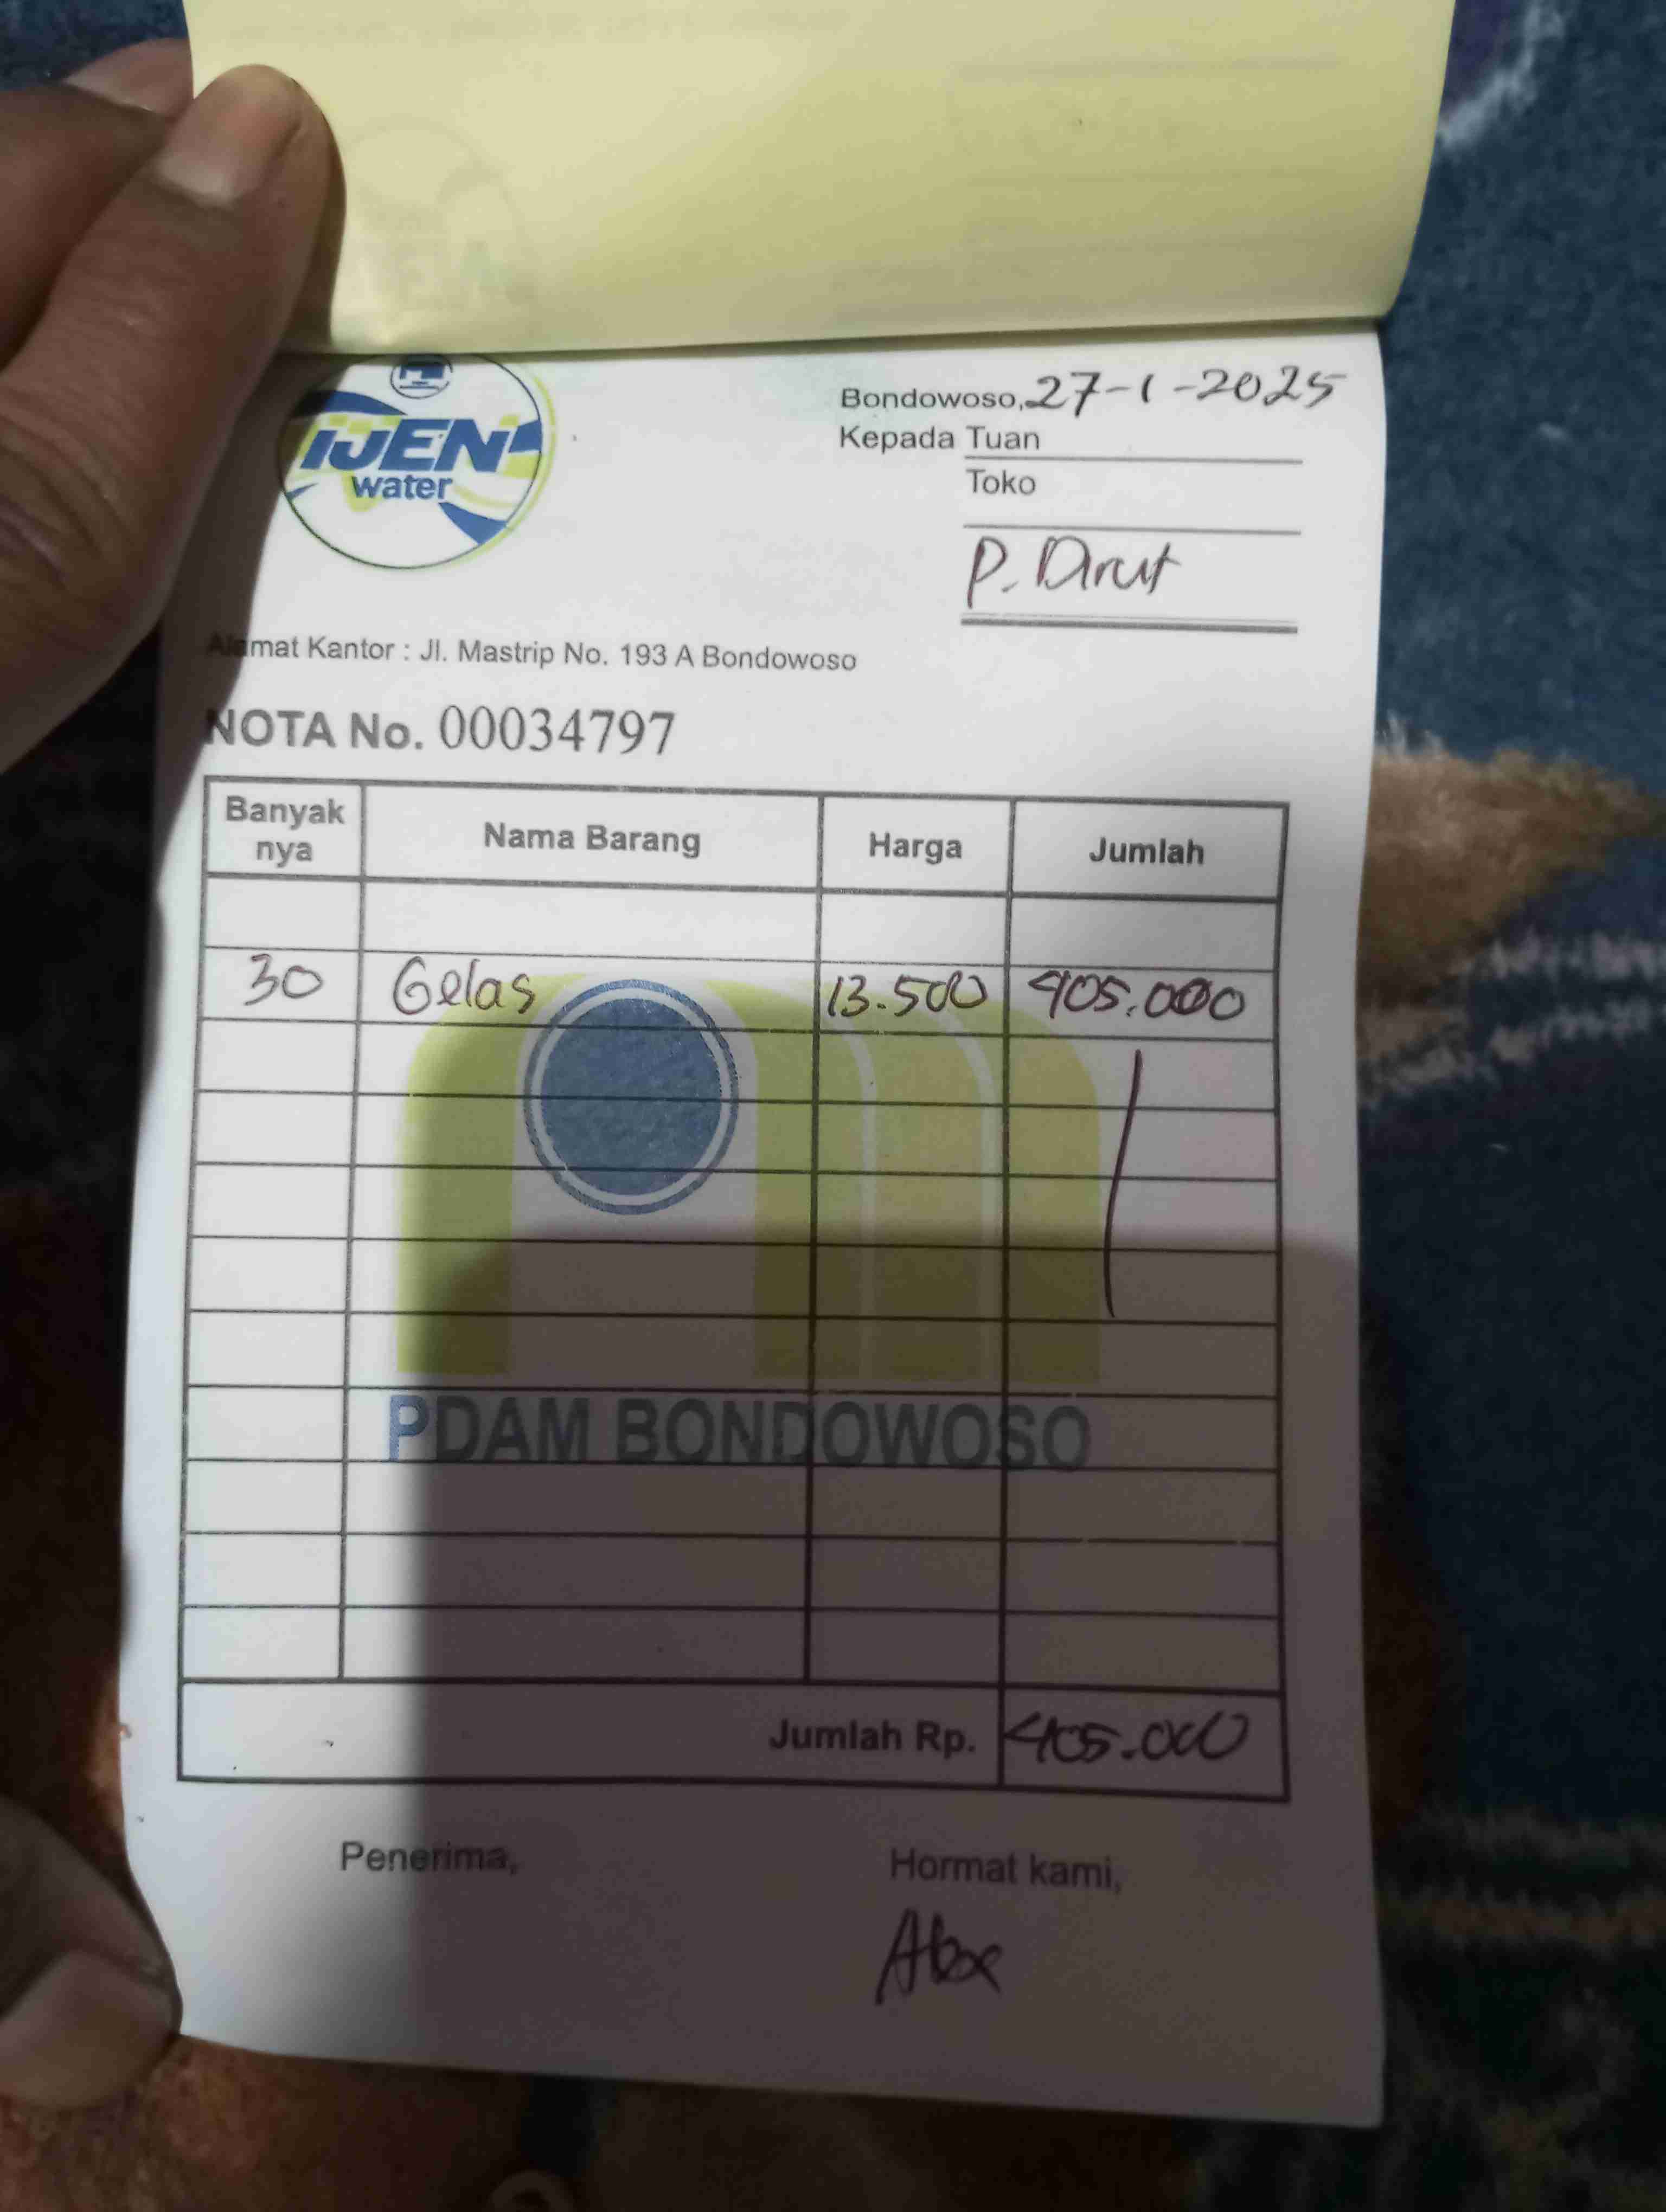 IJEN
water
Bondowoso, 27-1-2025
Kepada Tuan
Toko
P. Dirut
Alamat Kantor : Jl. Mastrip No. 193 A Bondowoso
NOTA No. 00034797
Banyak nya Nama Barang Harga Jumlah
30 Gelas 13.500 405.000
PDAM BONDOWOSO
Jumlah Rp. 405.000
Penerima, Hormat kami,